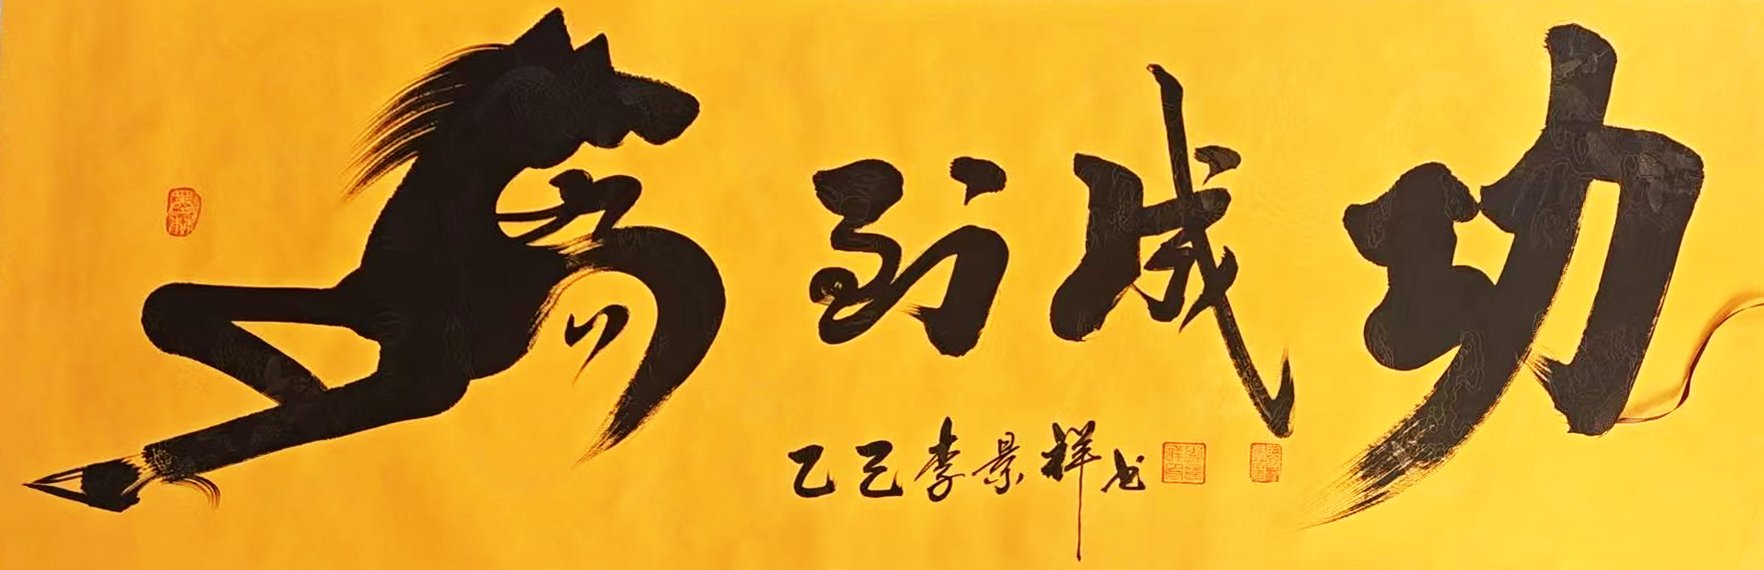 馬到成功
乙巳李景祥书